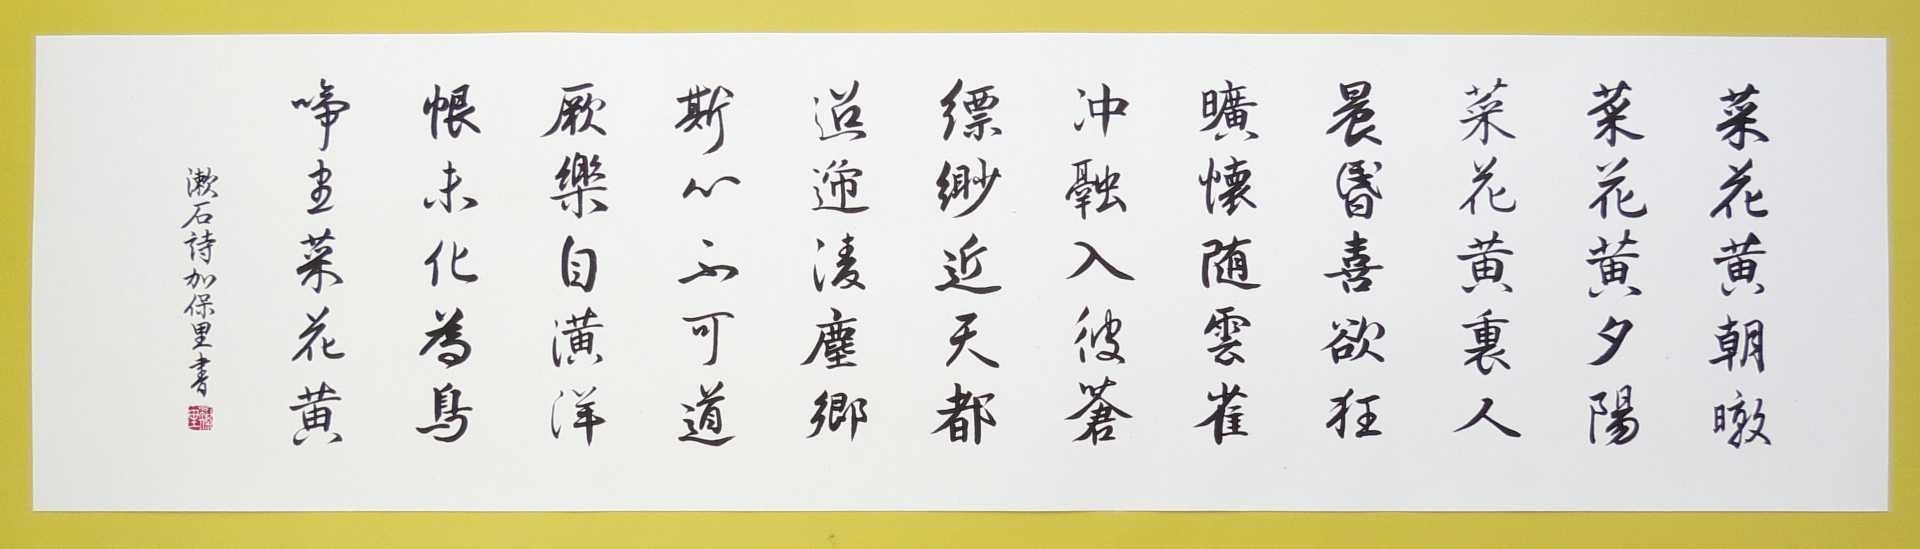 菜花黄朝暾
菜花黄夕陽
菜花黄裏人
晨昏喜欲狂
曠懐随雲雀
冲融入彼蒼
縹緲近天都
迢逓凌塵郷
斯心不可道
厥樂自潢洋
恨未化為鳥
啼尽菜花黄
漱石詩加保里書